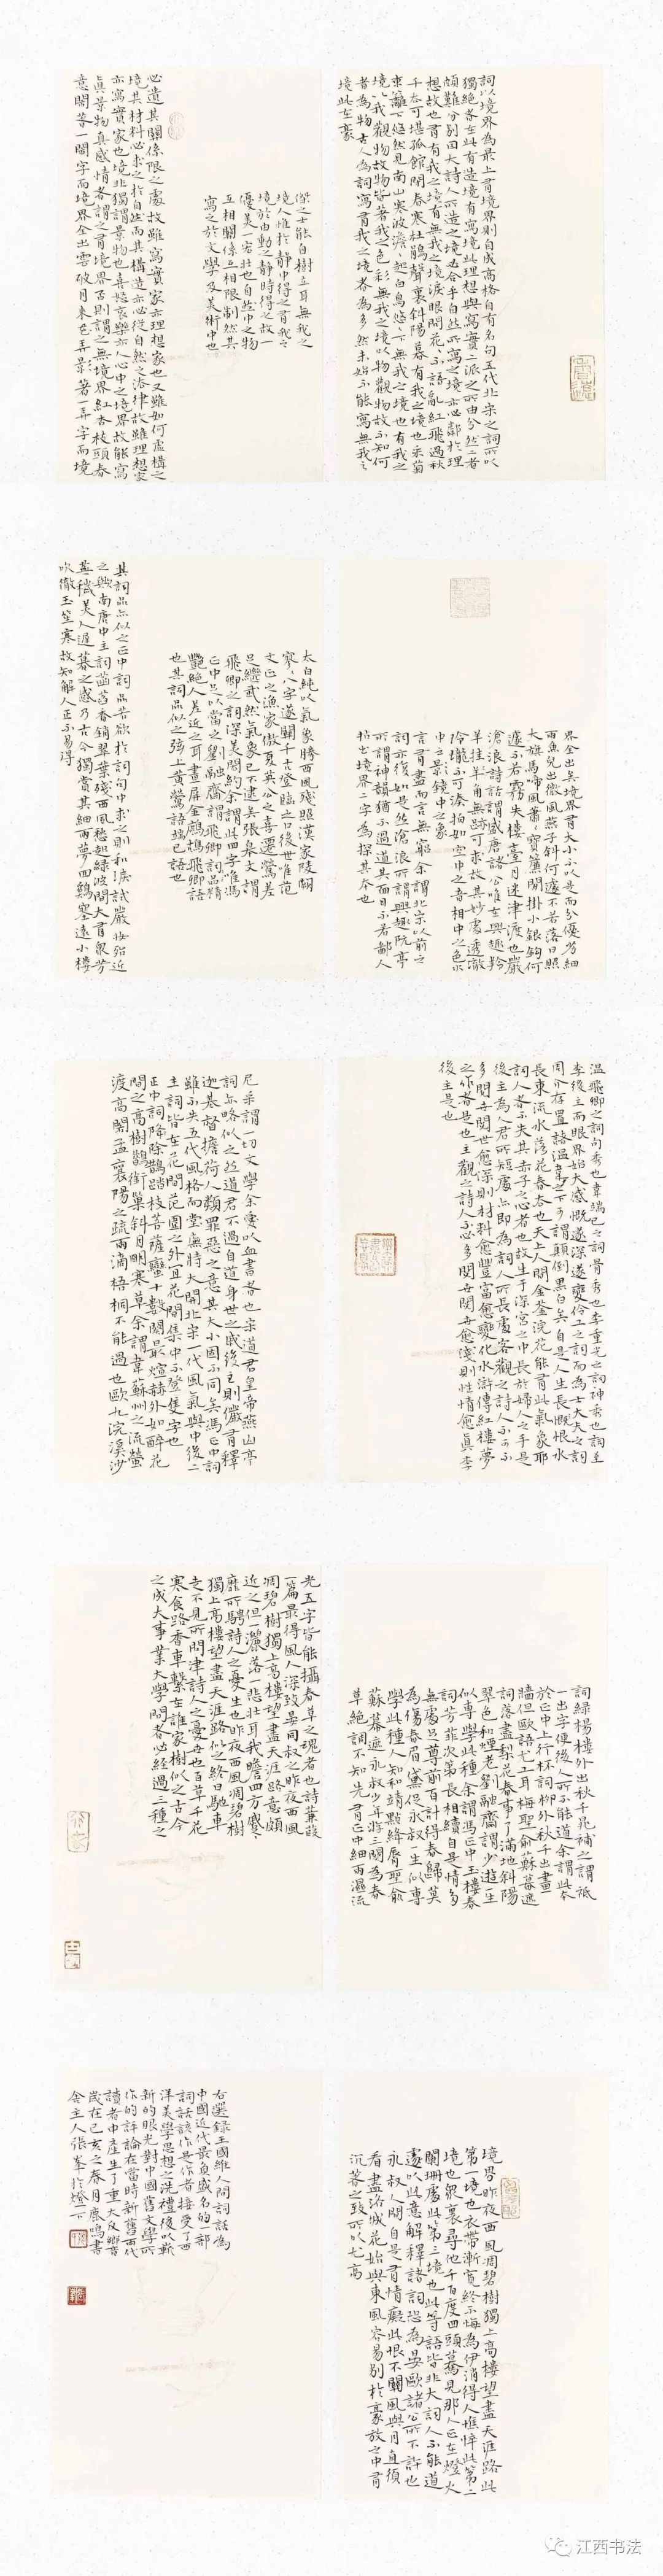 詞以境界為最上有境界則自成高格自有名句五代北宋之詞所以
獨絕者在此有造境有寫境此理想與寫實二派之所由分然二者
頗難分別因大詩人所造之境必合乎自然所寫之境亦必鄰於理
想故也有有我之境有無我之境淚眼問花花不語亂紅飛過秋
千去可堪孤館閉春寒杜鵑聲裏斜陽暮有我之境也采菊
東籬下悠然見南山寒波澹澹起白鳥悠悠下無我之境也有我之
境以我觀物故物皆著我之色彩無我之境以物觀物故不知何
者為物古人為詞寫有我之境者為多然未始不能寫無我之
境此在豪
傑之士能自樹立耳無我之
境人惟於靜中得之有我之
境於由動之靜時得之故一
優美一宏壯也自然中之物
互相關係互相限制然其
寫之於文學及美術中也
必遺其關係限之處故雖寫實家亦理想家也又雖如何虛構之
境其材料必求之於自然而其構造亦必從自然之法律故雖理想家
亦寫實家也境非獨謂景物也喜怒哀樂亦人心中之境界故能寫
真景物真感情者謂之有境界否則謂之無境界紅杏枝頭春
意鬧著一鬧字而境界全出雲破月來花弄影著一弄字而境
界全出矣境界有大小不以是而分優劣細
雨魚兒出微風燕子斜何遽不若落日照
大旗馬鳴風蕭蕭寶簾閒掛小銀鉤何
遽不若霧失樓臺月迷津渡也嚴
滄浪詩話謂盛唐諸公唯在興趣羚
羊挂角無跡可求故其妙處透澈
玲瓏不可湊拍如空中之音相中之色水
中之景鏡中之象
言有盡而言無窮余謂北宋以前之
詞亦復如是然滄浪所謂興趣阮亭
所謂神韻猶不過道其面目不若鄙人
拈出境界二字為探其本也
太白純以氣象勝西風殘照漢家陵闕
寥寥八字遂關千古登臨之口後世唯范
文正之漁家傲夏英公之喜遷鶯差
足繼武然氣象已不逮矣張皋文謂
飛卿之詞深美閎約余謂此四字唯馮
正中足以當之劉融齋謂飛卿詞品精
艷絕人差近之耳畫屏金鷓鴣飛卿語
也其詞品似之弦上黃鶯語端己語也
其詞品亦似之正中詞品若欲於詞句中求之則和淚試嚴妝殆近
之與南唐中主詞菡萏香銷翠葉殘西風愁起綠波間大有眾芳
蕪穢美人遲暮之感乃古今獨賞其細雨夢回雞塞遠小樓
吹徹玉笙寒故知解人正不易得
溫飛卿之詞句秀也韋端己之詞骨秀也李重光之詞神秀也詞至
李後主而眼界始大感慨遂深遂變伶工之詞而為士大夫之詞
周介存置諸溫韋之下可謂顛倒黑白矣自是人生長恨水
長東流水落花春去也天上人間金荃浣花能有此氣象耶
詞人者不失其赤子之心者也故生于深宮之中長於婦人之手是
後主為人君所短處亦即為詞人所長處客觀之詩人不可不
多閱世閱世愈深則材料愈豐富愈變化水滸傳紅樓夢
之作者是也主觀之詩人不必多閱世閱世愈淺則性情愈真李
後主是也
尼采謂一切文學余愛以血書者也宋道君皇帝燕山亭
詞亦略似之然道君不過自道身世之感後主則儼有釋
迦基督擔荷人類罪惡之意其大小固不同矣馮正中詞
雖不失五代風格而堂廡特大開北宋一代風氣與中後二
主詞皆在花間范圍之外宜花間集中不登隻字也
正中詞除鵲踏枝菩薩蠻十數闋最煊赫外如醉花
間之高樹鵲銜巢斜月明寒草余謂韋蘇州之流螢
渡高閣孟襄陽之疏雨滴梧桐不能過也歐九浣溪沙
詞綠楊樓外出秋千晁補之謂祗
一出字便後人所不能道余謂此本
於正中上行杯詞柳外秋千出畫
牆但歐語尤工耳梅聖俞蘇幕遮
詞落盡梨花春事了滿地斜陽
翠色和煙老劉融齋謂少游一生
似專學此種余謂馮正中玉樓春
詞芳菲次第長相續自是情多
無處足尊前百計得春歸莫
為傷春眉黛促永叔一生似專
學此種人知和靖點絳脣聖俞
蘇幕遮永叔少年游三闋為春
草絕調不知先有正中細雨濕流
光五字皆能攝春草之魂者也詩蒹葭
一篇最得風人深致晏同叔之昨夜西風
凋碧樹獨上高樓望盡天涯路意頗
近之但一灑落一悲壯耳我瞻四方蹙蹙
靡所騁詩人之憂生也昨夜西風凋碧樹
獨上高樓望盡天涯路似之終日馳車
走不見所問津詩人之憂世也百草千花
寒食路香車繫在誰家樹似之古今
之成大事業大學問者必經過三種之
境界昨夜西風凋碧樹獨上高樓望盡天涯路此
第一境也衣帶漸寬終不悔為伊消得人憔悴此第二
境也眾裏尋他千百度回頭驀見那人正在燈火
闌珊處此第三境也此等語皆非大詞人不能道
遽以此意解釋諸詞恐為晏歐諸公所不許也
永叔人間自是有情癡此恨不關風與月直須
看盡洛城花始與東風容易別於豪放之中有
沉著之致所以尤高
右選錄王國維人間詞話為
中國近代最負盛名的一部
詞話該作是作者接受了西
洋美學思想之洗禮後以嶄
新的眼光對中國舊文學所
作的評論在當時新舊兩代
讀者中產生了重大反響
歲在己亥之春月鹿鳴書
舍主人張峯於燈下
江西书法